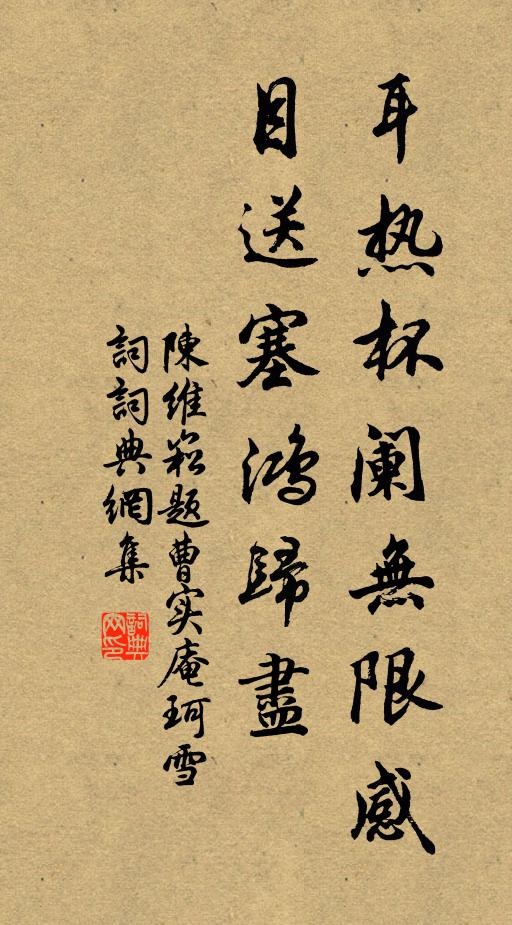 耳热杯阑無限感
目送塞鴻歸盡
陳維崧題曹实庵珂雪
詞詞典網集
詞典网印